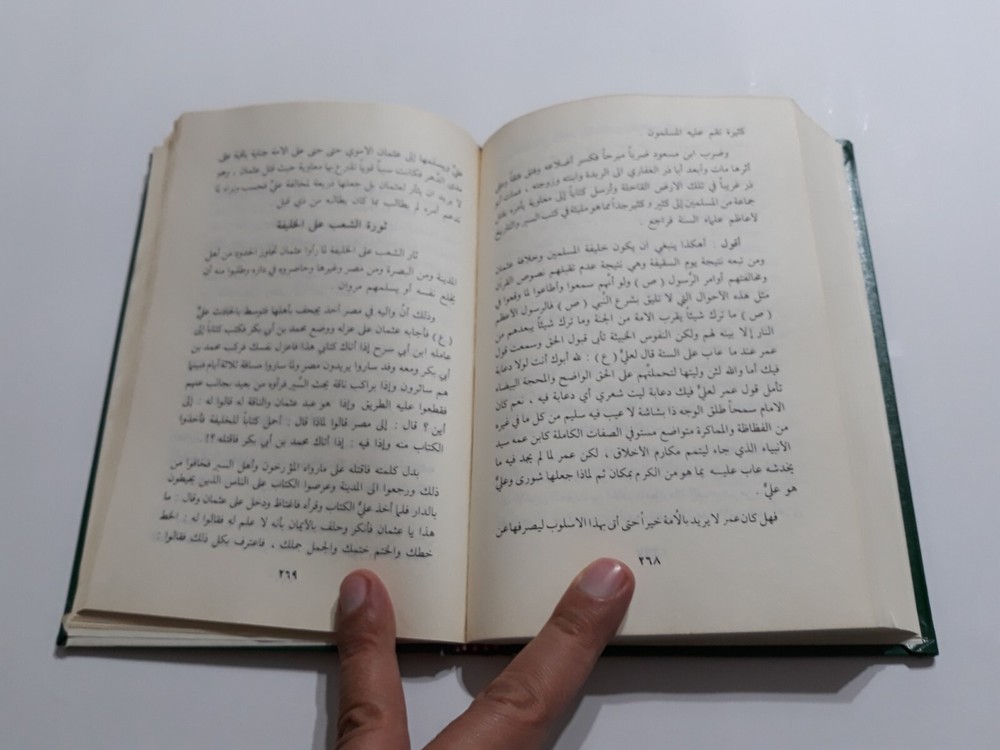 كثيرة نقم عليه المسلمون .
وضرب ابن مسعود ضرباً مبرحاً فكسر أضلاعه وفتق فتقاً وعلى
أثرها مات وأبعد أبا ذر الغفاري الى الربذة وابنته وزوجته ، فمات أبو
ذر غريباً في تلك الارض القاحلة وأرسل كتاباً إلى معاوية يأمره بقتل
جماعة من المسلمين إلى كثير وكثير جداً مما هو مليئة في كتب السير والتاريخ
لأعاظم علماء السنة فراجع .
أقول : أهكذا ينبغي ان يكون خليفة المسلمين وخلافة عثمان
ومن تبعه نتيجة يوم السقيفة وهي نتيجة عدم تقبلهم نصوص القرآن
ومخالفتهم أوامر الرسول ( ص ) ولو أنهم سمعوا وأطاعوا لما وقعوا في
مثل هذه الأحوال التي لا تليق بشرع النبي ( ص ) فالرسول الأعظم
( ص ) ما ترك شيئاً يقرب الامة من الجنة وما ترك شيئاً يبعدهم من
النار إلا بينه لهم ولكن النفوس الخبيثة تأبى قبول الحق وسمعت قول
عمر عند ما عاب على الستة قال لعليٍّ ( ع ) : لله أبوك أنت لولا دعابة
فيك أما والله لئن وليتها لتحملنّهم على الحق الواضح والمحجة البيضاء
تأمل قول عمر لعليٍّ فيك دعابة ليت شعري أي دعابة فيه ، نعم كان
الامام سمحاً طلق الوجه ذا بشاشة لا عيب فيه سليم من كل ما في غيره
من الفظاظة والمماكرة متواضع مستوفي الصفات الكاملة كابن عمه سيد
الأنبياء الذي جاء ليتمم مكارم الأخلاق ، لكن عمر لما لم يجد فيه ما
يخدشه عاب عليه بما هو من الكرم بمكان ثم لماذا جعلها شورى وعليٌّ
هو عليٌّ .
فهل كان عمر لا يريد بالأمة خيراً حتى أتى بهذا الاسلوب ليصرفها عن
٢٦٨
عليٍّ ويسلمها إلى عثمان الاموي حتى جنى على الامة جناية باقية على
مدى الدهر فكانت سبباً قوياً تذرع بها معاوية حيث قتل عثمان ، وهو
لا يريد ان يثأر لعثمان بل جعلها ذريعة لمخالفة عليٍّ فحسب ولذا
تدعم أمره لم يطالب بما كان يطالبه من ذي قبل .
ثورة الشعب على الخليفة
ثار الشعب على الخليفة لما رأوا عثمان تجاوز الحدود من أهل
المدينة ومن البصرة ومن مصر وغيرها وحاصروه في داره وطلبوا منه أن
يخلع نفسه أو يسلمهم مروان
وذلك أنّ واليه في مصر أخذ يجحف بأهلها فتوسط بالحادث عليٌّ
( ع ) فأجابه عثمان على عزله ووضع محمد بن أبي بكر فكتب كتاباً إلى
عامله ابن أبي سرح إذا أتاك كتابي هذا فاعزل نفسك فركب محمد بن
أبي بكر ومعه وفد ساروا يريدون مصر ولما ساروا مسافة ثلاثة أيام فبينما
هم سائرون وإذا براكب ناقة يحث السَّير فرأوه من بعيد بجانب عنهم
فقطعوا عليه الطريق وإذا هو عبد عثمان والناقة له قالوا له : إلى
أين ؟ قال : إلى مصر قالوا لماذا قال : أحمل كتاباً للخليفة فأخذوا
الكتاب منه وإذا فيه : إذا أتاك محمد بن أبي بكر فاقتله ؟!.
بدل كلمته فاقتله على مارواه المؤرخون وأهل السير فخافوا من
ذلك ورجعوا الى المدينة وعرضوا الكتاب على الناس الذين يحيطون
بالدار فلما أخذ عليٌّ الكتاب وقرأه فاغتاظ ودخل على عثمان وقال : ما
هذا يا عثمان فأنكر وحلف بالأيمان بأنه لا علم له فقالوا له : الخط
خطك والختم ختمك والجمل جملك ، فاعترف بكل ذلك فقالوا :
٢٦٩